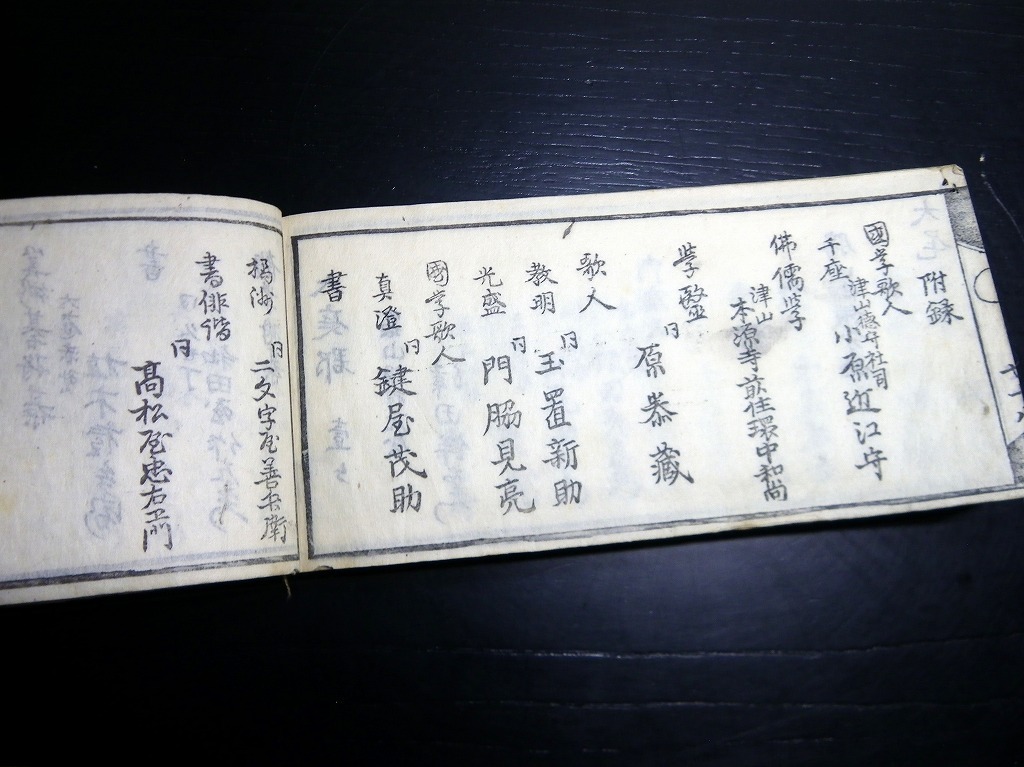 附録
國学歌人
津山徳守社司
千座 小原近江守
佛儒学
津山
本源寺前住環中和尚
学醫
日 原恭藏
歌人
教明 日 玉置新助
光盛 日 門脇見亮
國学歌人
真澄 日 鍵屋茂助
書
日 二文字屋善兵衛
書俳諧
日 髙松屋忠右衛門